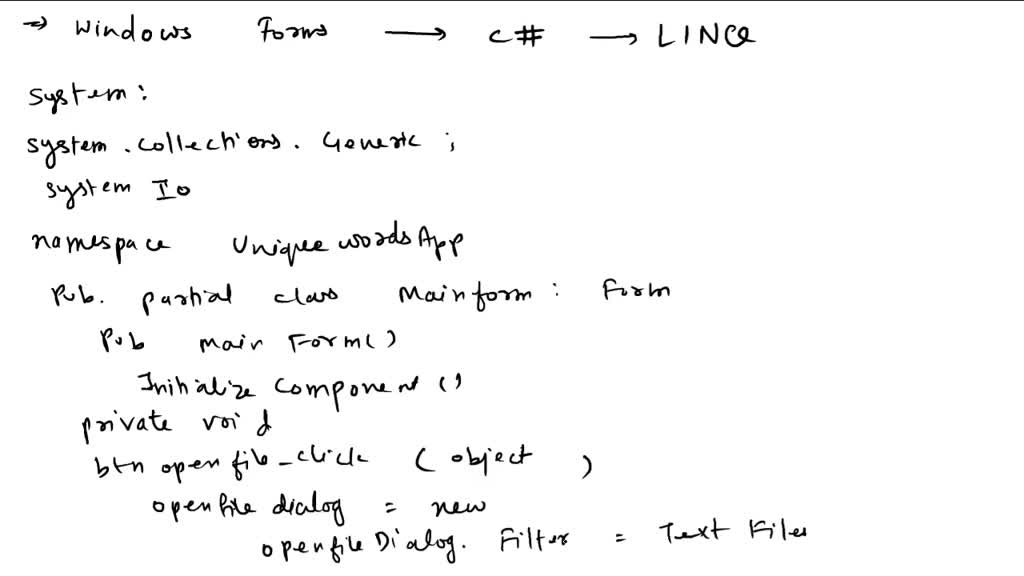 ⇒ Windows Forms → C# → LINQ
System:
System.Collections.Generic;
System IO
namespace UniquewordsApp
Pub. partial class Mainform: Form
Pub main Form()
Initialize component ()
private void
btn openfile_click (object )
openfile dialog = new
openfileDialog. Filter = Text Files